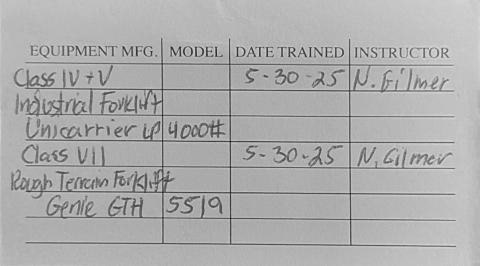 EQUIPMENT MFG. MODEL DATE TRAINED INSTRUCTOR
Class IV + V 5-30-25 N. Gilmer
Industrial Forklift
Unicarrier LP 4000#
Class VII 5-30-25 N. Gilmer
Rough Terrain Forklift
Genie GTH 5519